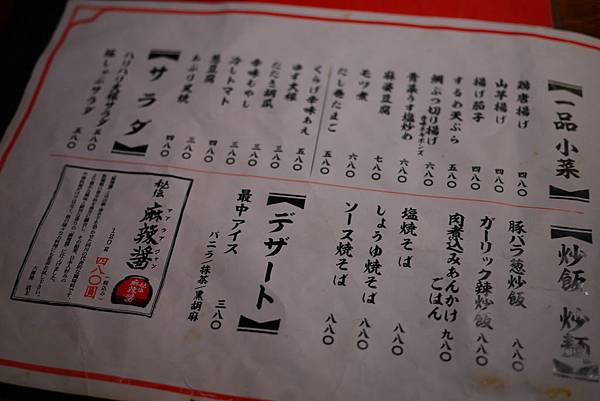 【一品小菜】
鶏唐揚げ 四八〇
山芋揚げ 四八〇
揚げ茄子 四八〇
するめ天ぷら 五八〇
鯛ぶつ切り揚げ 六八〇
青菜うま塩炒め 六八〇
麻婆豆腐 七八〇
モツ煮 六八〇
だし巻たまご 五八〇
くらげ辛味あえ 五八〇
ゆず大根 三八〇
辛味もやし 三八〇
たたき胡瓜 三八〇
冷しトマト 三八〇
葱豆腐 三八〇
あぶり叉焼 四八〇
【サラダ】
ハリハリ大根サラダ 五八〇
豚しゃぶサラダ 五八〇
【炒飯 炒麺】
豚バラ葱炒飯 八八〇
ガーリック辣炒飯 八八〇
肉煮込みあんかけ
ごはん 九八〇
塩焼そば 八八〇
しょうゆ焼そば 八八〇
ソース焼そば 八八〇
【デザート】
最中アイス
バニラ/抹茶/黒胡麻 三八〇
秘伝 麻辣醤
マアラアジャン
120g 四八〇圓
(税込み)
秘伝 麻辣醤